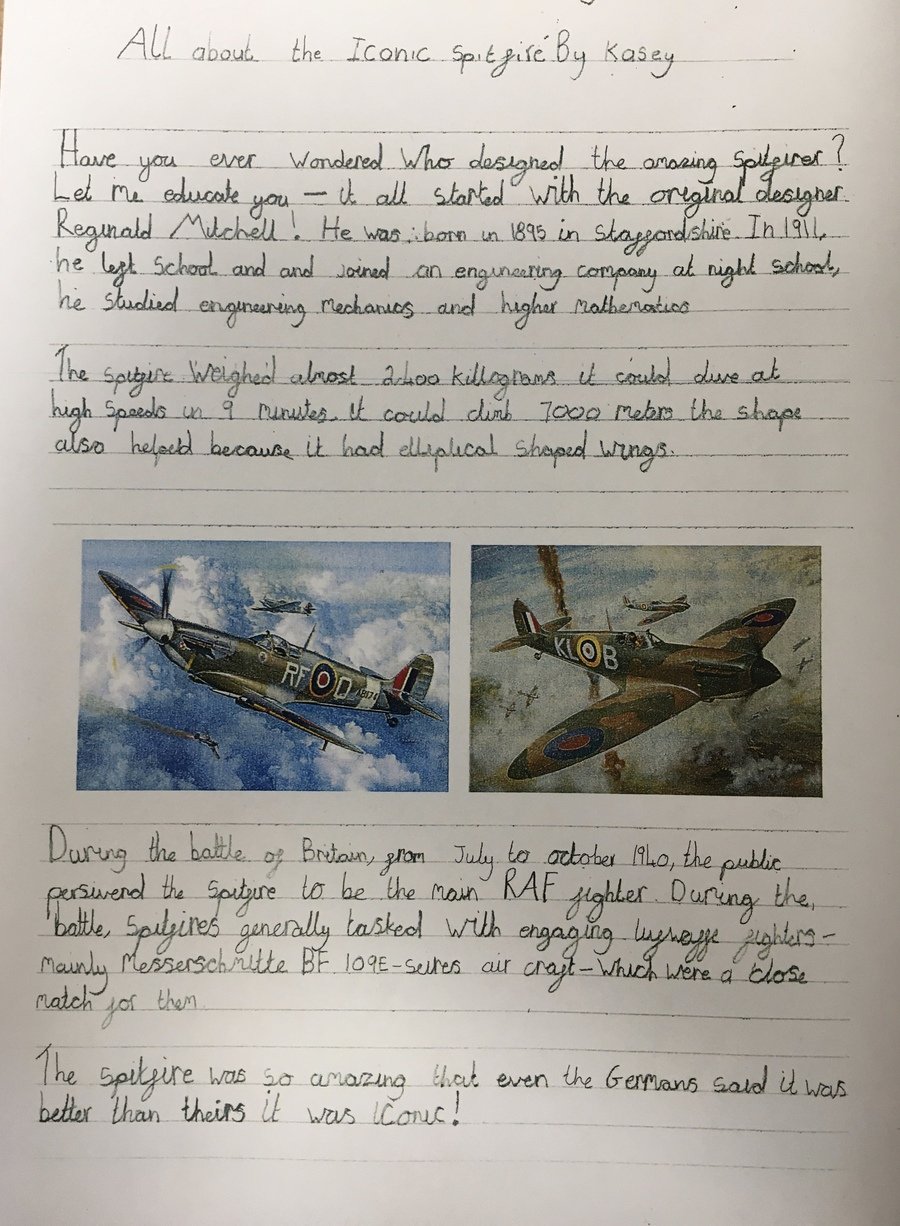 All about the Iconic Spitfire By Kasey
Have you ever wondered who designed the amazing Spitfirer?
Let me educate you — it all started with the original designer
Reginald Mitchell! He was born in 1895 in Staffordshire. In 1911,
he left School and and joined an engineering company at night school,
he studied engineering mechanics and higher mathematics
The spitfire weighed almost 2400 killograms it could dive at
high speeds in 9 minutes. It could climb 7000 meters the shape
also helped because it had elliptical shaped wings.
RF D
KL B
During the battle of Britain, from July to october 1940, the public
persiverd the Spitfire to be the main RAF fighter. During the,
battle, Spitfires generally tasked with engaging fighters-
mainly Messerschmitte BF 109E-seires air craft-which were a close
match for them
The spitfire was so amazing that even the Germans said it was
better than theirs it was Iconic!